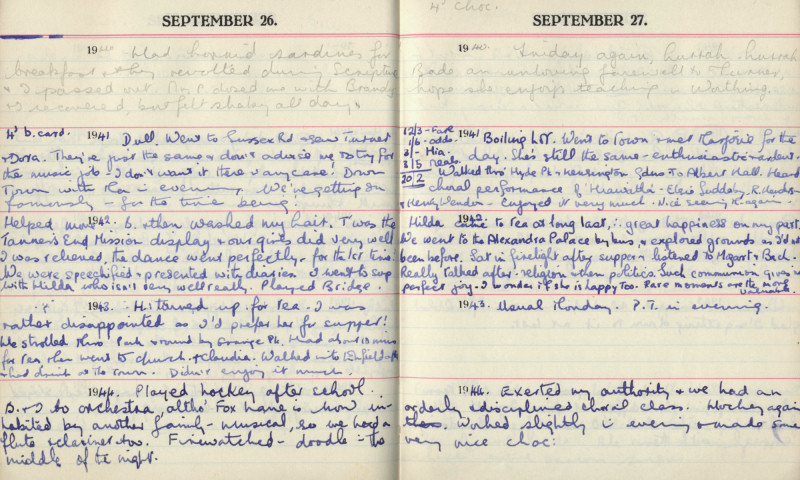 SEPTEMBER 26.
1940 Had horrid sardines for
breakfast & they revolted during Scripture
& I passed out. Mrs P dosed me with Brandy
& I recovered, but felt shaky all day.
4d b. card. 1941 Dull. Went to Sussex Rd & saw Turner
& Dora. They're just the same & don't advise me to try for
the music job - I don't want it there anyway. Down
Town with in evening. We're getting on
famously - for the time being!
Helped 1942. B. then washed my hair. T'was the
Tanner's End Mission display & our girls did very well
I was relieved, the dance went perfectly - for the 1st time.
We were speechified & presented with diaries. I went to sup
with Hilda who isn't very well really. Played Bridge.
1943. H. turned up for tea. I was
rather disappointed as I'd prefer her for supper!
We strolled thro' Park & round by Grange Pk. Had about 10 mins
for tea then went to church & Claudia. Walked into Enfield
& had drink at the Town. Didn't enjoy it much.
1944. Played hockey after school.
B. & I to orchestra, altho' Fox Lane is now in-
habited by another family - musical, so we had a
flute & clarinet too. Firewatched - doodle in the
middle of the night.
4d Choc.
SEPTEMBER 27.
1940. Friday again, hurrah, hurrah
Bade an unloving farewell to Turner,
hope she enjoys teaching in Worthing.
12/3 - Fare
1/6 - odds.
3/- Hia.
3/5 meals
20/2
1941 Boiling hot. Went to Town & met Marjorie for the
day. She's still the same - enthusiastic & ardent.
Walked thro' Hyde Pk & Kensington Gdns to Albert Hall. Heard
choral performance of "Hiawatha" - Elsie Suddaby, R. Henderson
& Henry Wendon - Enjoyed it very much. Nice seeing M. again.
Hilda 1942. came to tea at long last, ∴ great happiness on my part.
We went to the Alexandra Palace by bus, & explored grounds as I'd not
been before. Sat in firelight after supper & listened to Mozart & Bach.
Really talked after - religion & then politics. Such communion gives me
perfect joy. I wonder if she is happy too. Rare moments are the more
valuable.
1943. Usual Monday. P.T. in evening.
1944. Exerted my authority & we had an
orderly & disciplined choral class. Hockey again
Worked slightly in evening & made some
very nice choc: